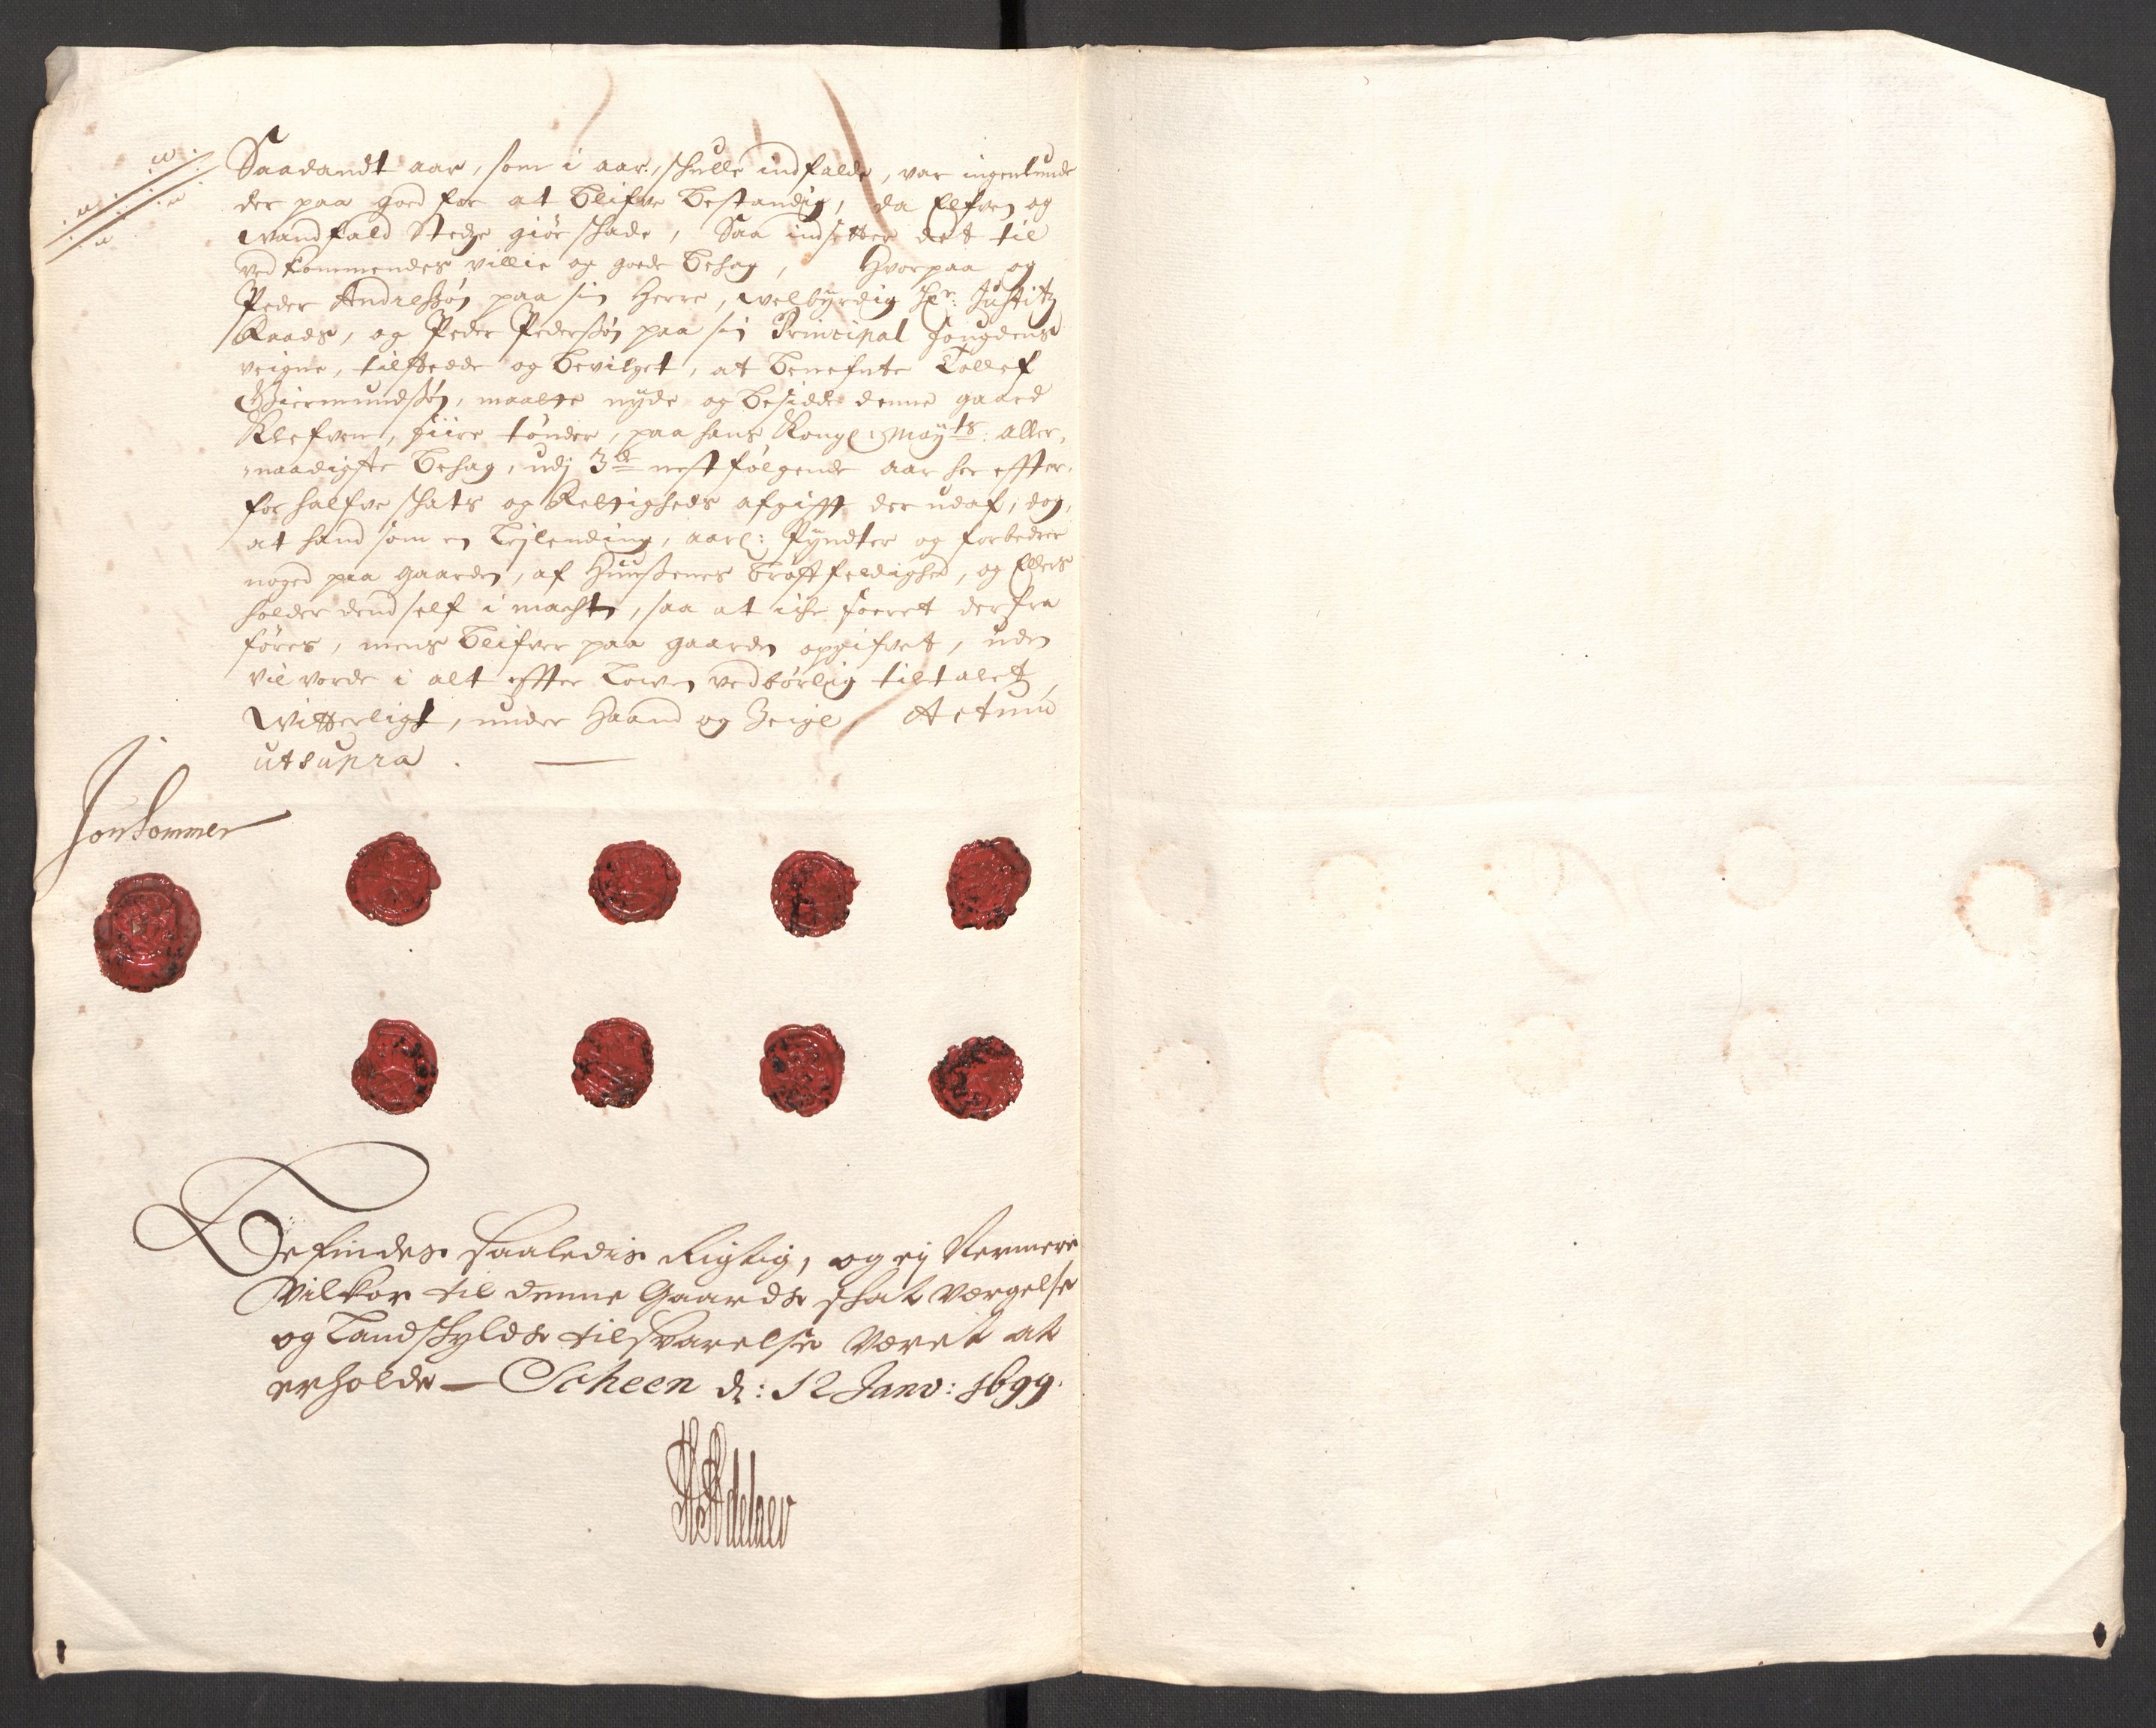 Saadandt aar, som i aar, schulle indfalde, var ingenlunde
der paa goed for at blifve bestandig, da Elfven og
wandfald stedze giør schade, Saa indsetter det til
vedkommendes villie og goede behag, Hvorpaa og
Peder Andreßøn paa sin Herre, welbyrdig Hr: Justitz
Raads, og Peder Pederßøn paa sin Principal fougdens
veigne, tilstedde og bevilget, at benefnte Tollef
Giermundßøn, maatte nyde og besidde denne gaard
Klefven, fiire tønder, paa hans Kongl: Mayts: aller,
naadigste behag, udj 3de nest følgende aar her effter,
for halfve schats og Rettigheds afgifft der udaf, dog,
at hand som en Leylending, aarl: Rÿndter og forbedrer
noged paa gaarden, af Huußenes brøstfeldighed, og Ellers
holder dend self i machten, saa at iche foeret derfra
føres, mens blifver paa gaarden opgifvet, uden
vil vorde i alt effter Lowen vedbørlig tiltalet,
Witterligt, under Haand og Zeigl, Actum
utsupra.
Jon Sommer
Befindes saaledis Rigtig, og ej Nermere
Vilkor til denne Gaards schat Værgelse
og Landschylds tilsvarelse Været at
erholde – Scheen d: 12 Janv: 1699.
HAdeler